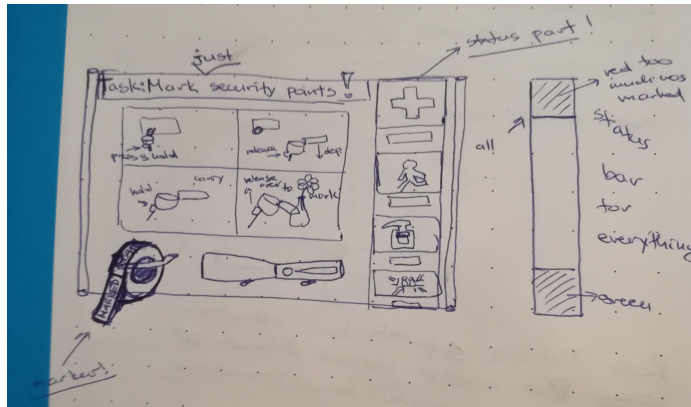 just
Task: Mark security points!
status part!
press & hold
release
drop
hold
carry
release
over to
mark
MARKED
marker!
all
red too
much was
marked
status
bar
for
everything
green